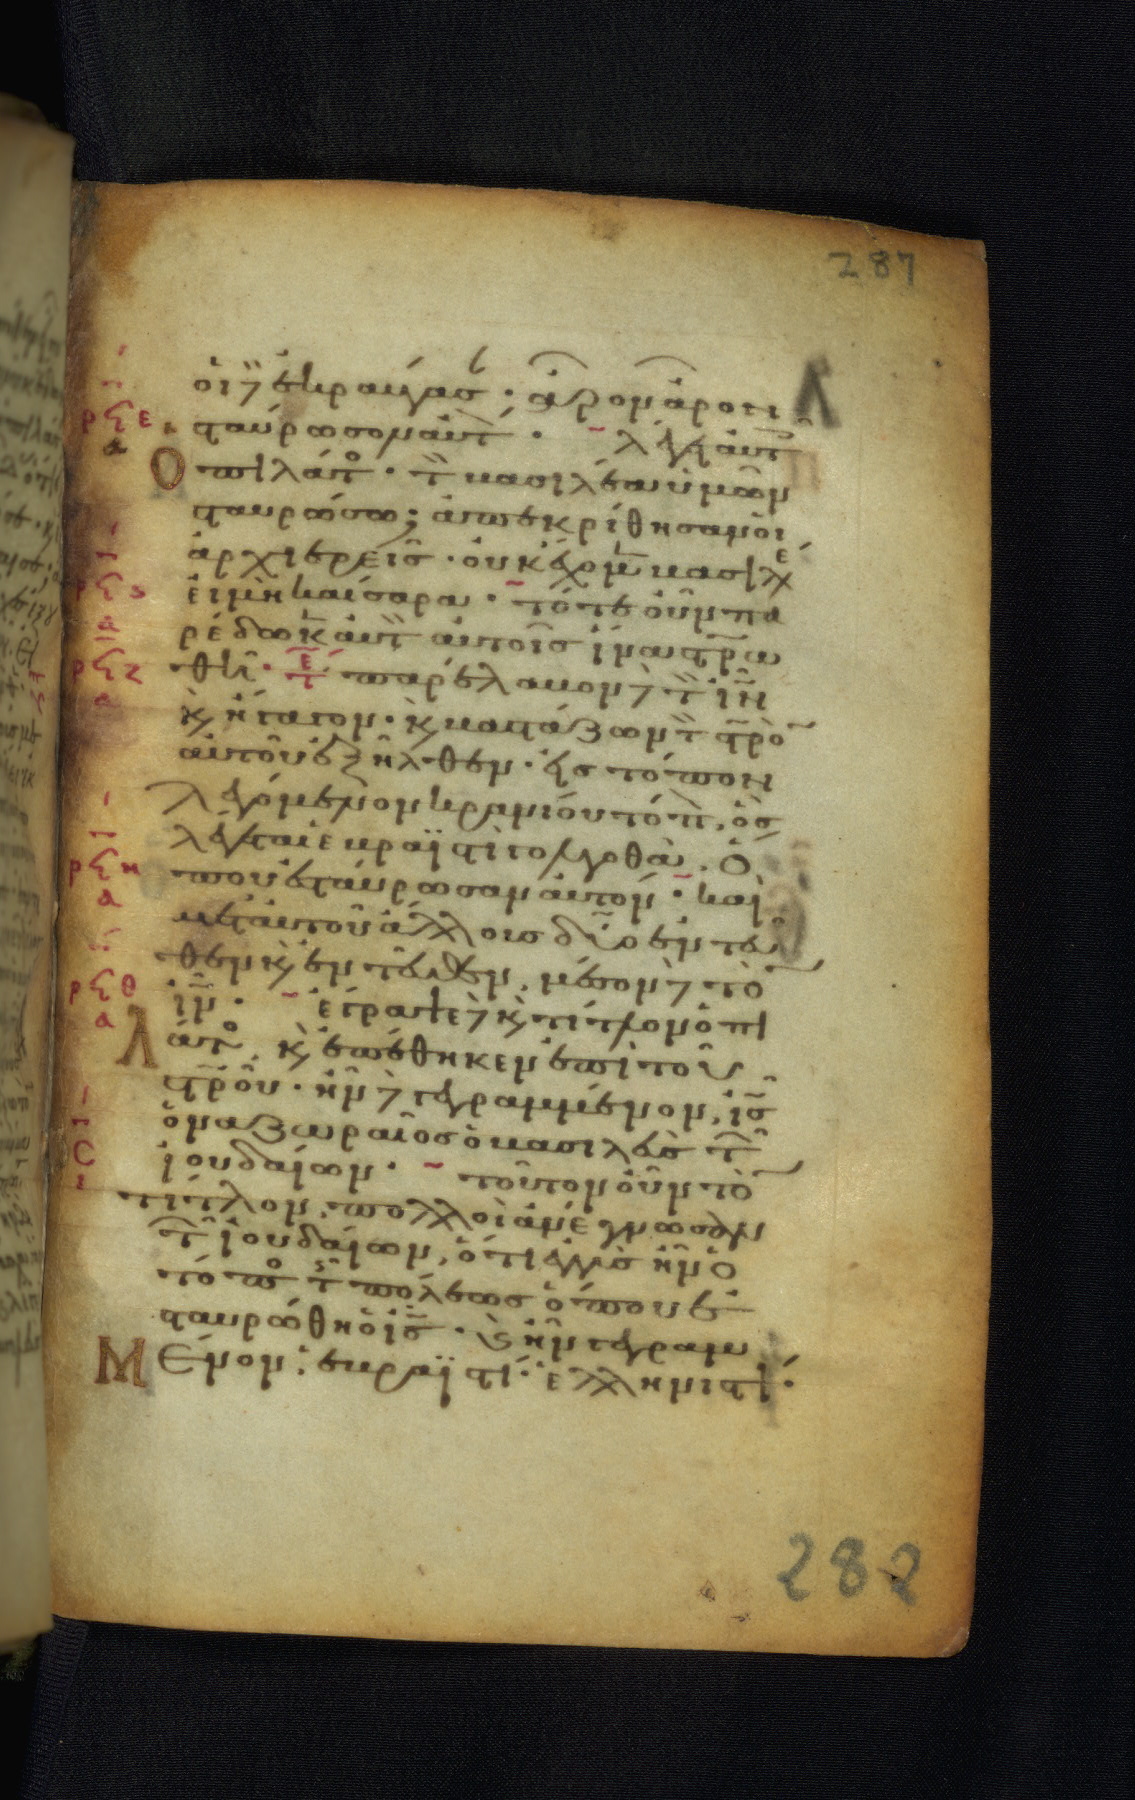 287
οἱ δὲ ἐκραύγασ · ἆρον ἆρον
σταύρωσον αὐτ · λέγει αὐτ
Ο πιλάτο · τ βασιλέα ὑμῶν
σταυρώσω; ἀπεκρίθησαν οἱ
ἀρχιερεῖσ · οὐκ ἔχομ βασιλέ
εἰ μὴ καίσαρα · τότε οὖν πα
ρέδωκ αὐτ αὐτοῖσ ἵνα στρω
θῆ · παρέλαβον δὲ τ ἰν
κ ἤγαγον · κ βαστάζων τ στρὸ
αὐτοῦ ἐξῆλθεν · εἰσ τόπον
λεγόμενον κρανίου τόπ, ὃσ
λέγεται ἑβραϊστὶ γολγοθᾶ. ὅ
που ἐσταύρωσαν αὐτόν · καὶ
μετ αὐτοῦ ἄλλουσ δύο ἐντεῦ
θεν κ ἐντεῦθεν, μέσον δὲ τὸ
ἰν · ἔγραψε δὲ κ τίτλον ὁ πι
λάτο, κ ἔθηκεν ἐπὶ τοῦ
στρου · ἦν δὲ γεγραμμένον, ἰσ
ὁ ναζωραῖοσ ὁ βασιλεὺσ τ
ἰουδαίων · τοῦτον οὖν τὸ
τίτλον, πολλοὶ ἀνέγνωσαν
τ ἰουδαίων, ὅτι ἐγγὺσ ἦν ὁ
τόπο τ πόλεωσ ὅπου ἐ
σταυρώθη ὁ ἰσ · κ ἦν γεγραμ
Μένον, ἑβραϊστί · ἑλληνιστί ·
ρϟε
α
ρϟς
α
ρϟζ
α
ρϟη
α
ρϟθ
α
282